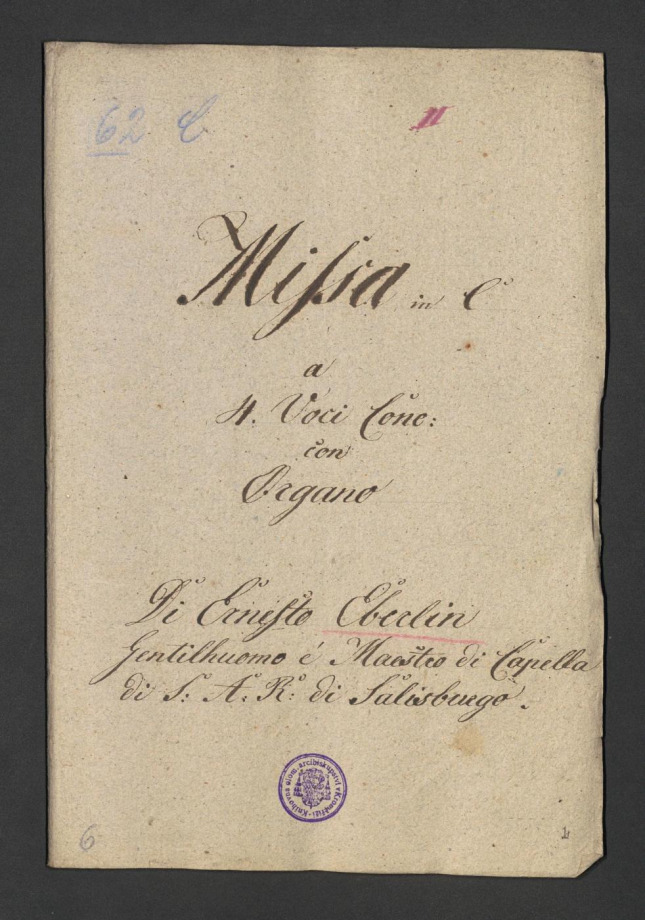 62 C
II
Missa in C
a
4. Voci Conc:
con
Organo
Di Ernesto Eberlin
Gentilhuomo é Maestro di Capella
di S: A: R: di Salisburgo.
Knihovna olom. arcibiskupství v Kroměříži
6
1